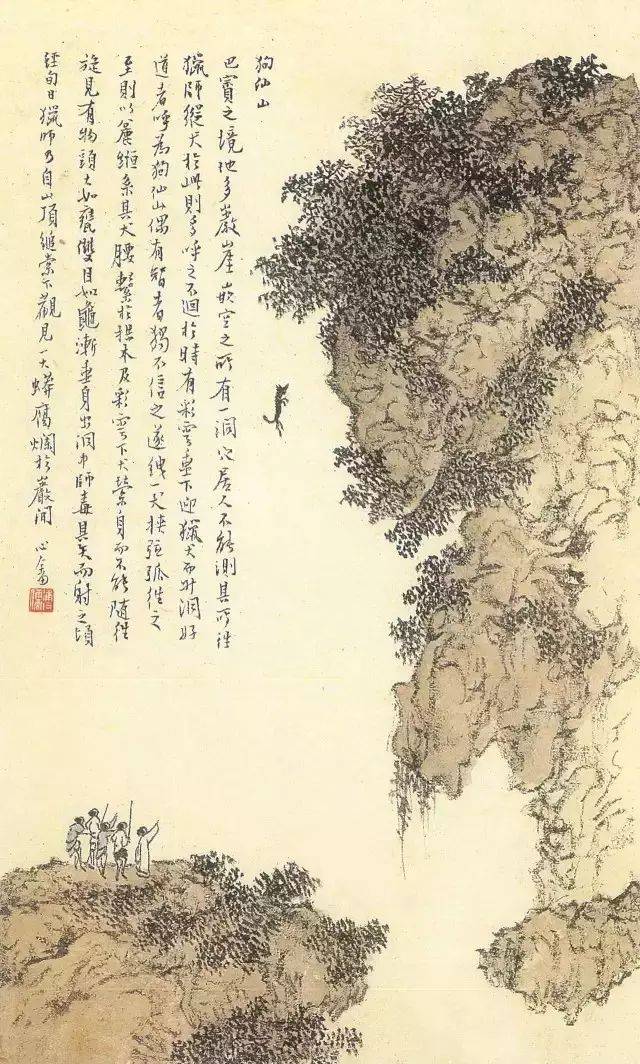 狗仙山
巴賨之境地多巖崖嵌空之所有一洞穴居人不能測其所往
獵師縱犬於此則多呼之不迴於時有彩雲垂下迎獵犬而升洞好
道者呼為狗仙山偶有智者獨不信之遂緤一犬挾弧往之
至則以麤縆系其犬腰繫於木及彩雲下犬縈身而不能隨往
旋見有物頭大如甕雙目如龜漸垂身出洞中師毒其矢而射之頃
經旬日獵師乃自山頂縋索下觀見一大蟒腐爛於巖間 心畬
溥儒